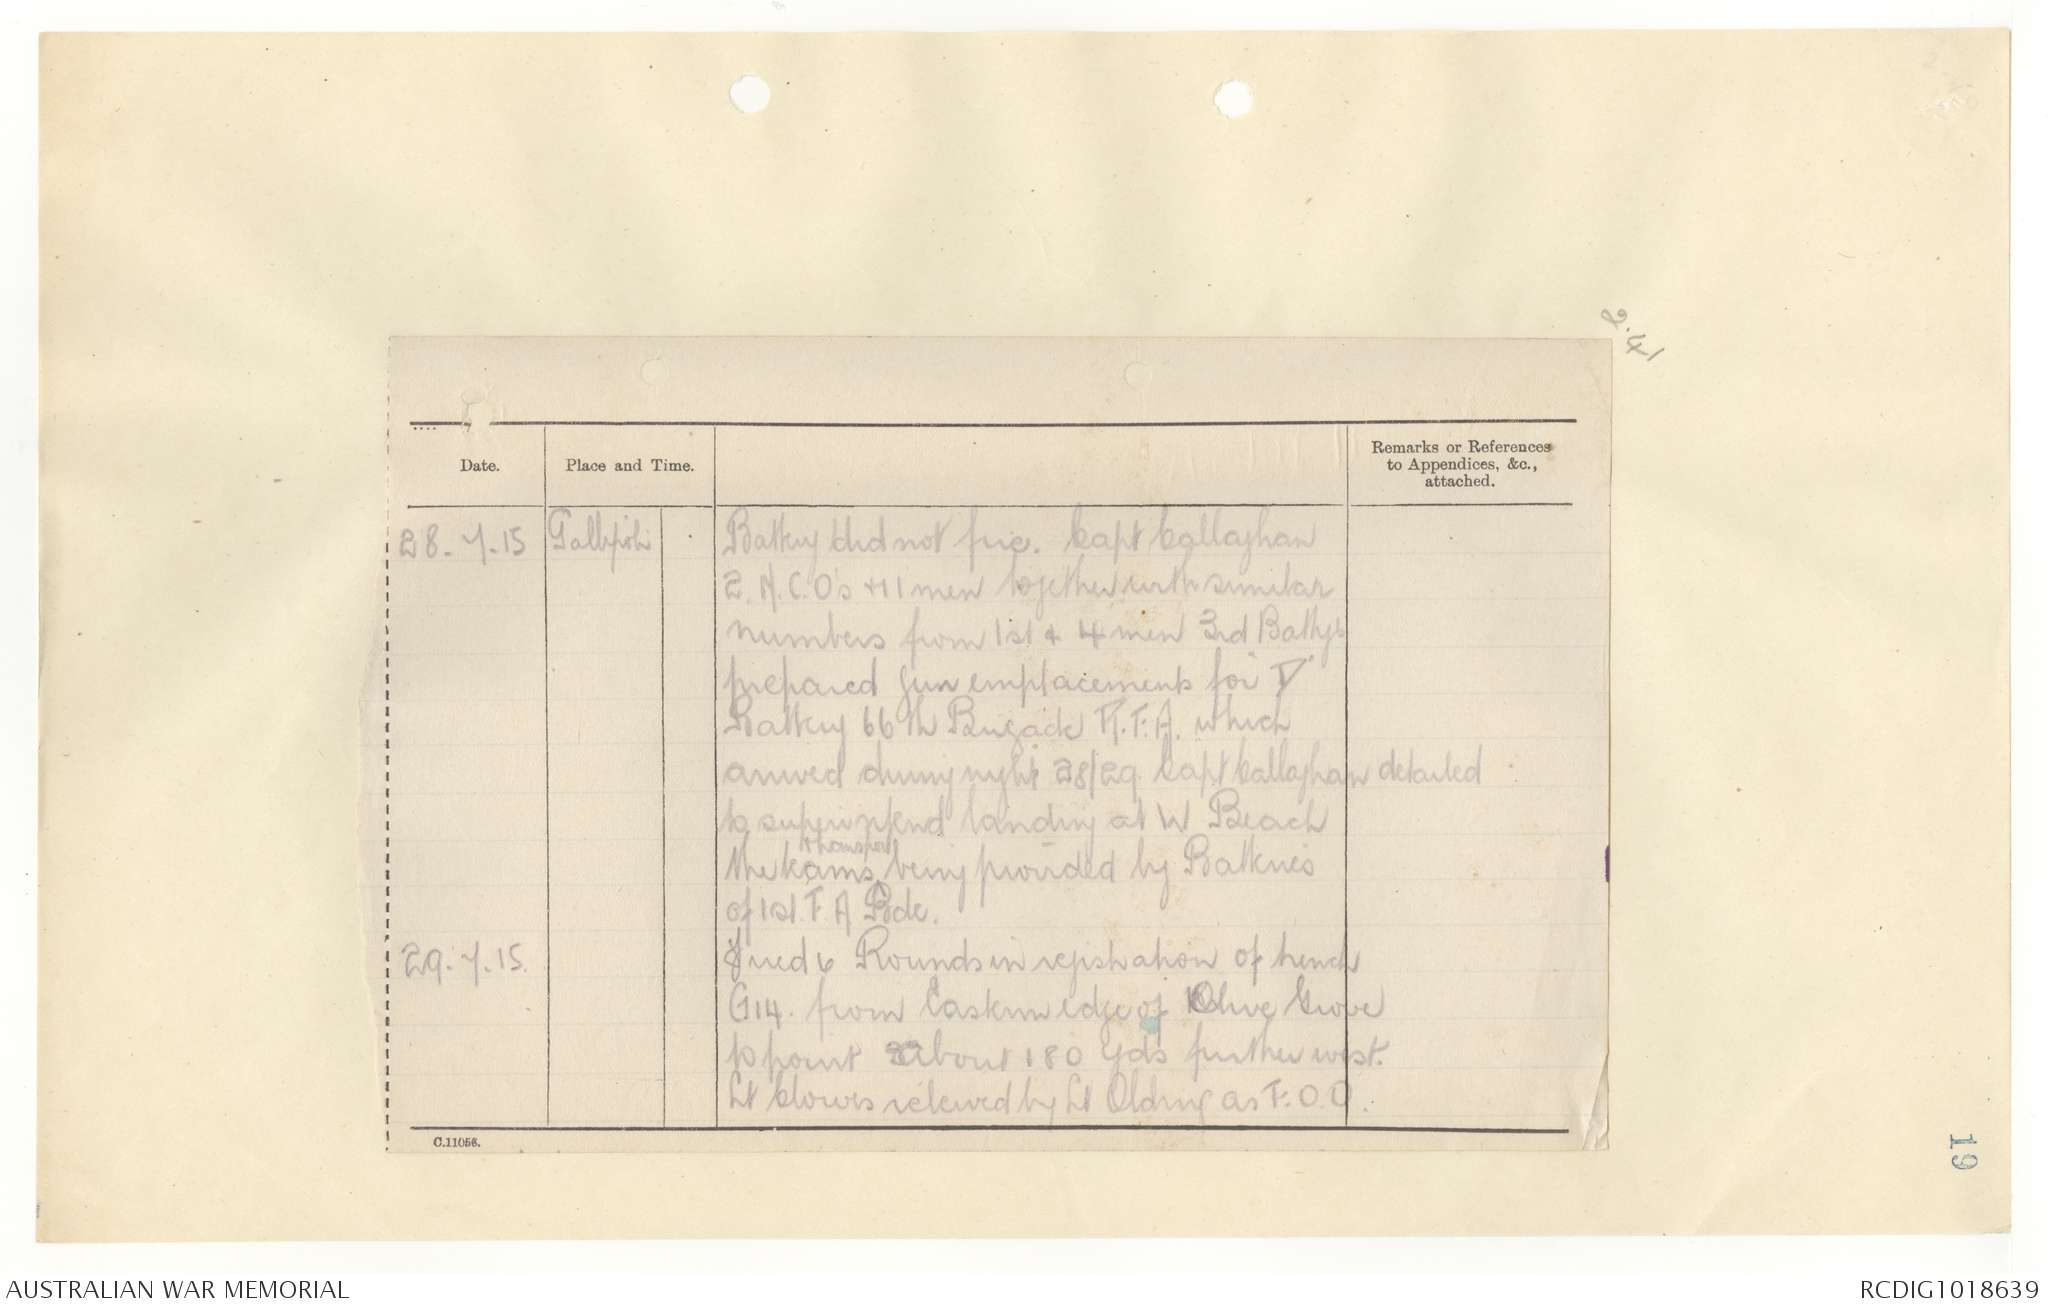 2.41
Date.
Place and Time.
Remarks or References
to Appendices, &c.,
attached.
28.7.15 Gallipoli Battery did not fire. Capt Callaghan
2. N.C.O's + 11 men together with similar
numbers from 1st & 4 men 3rd Batty's
prepared gun emplacements for
Battery 66th Brigade R.F.A. which
arrived during night 28/29. Capt Callaghan detailed
to superintend landing at W Beach
transport
the teams being provided by Batteries
of 1st F.A Bde.
29.7.15. Fired 6 Rounds in registration of trench
G14. from Eastern edge of Olive Grove
to point about 180 Yds further west.
Lt Clowes relieved by Lt Olding as F.O.O.
C.11056.
19
AUSTRALIAN WAR MEMORIAL
RCDIG1018639